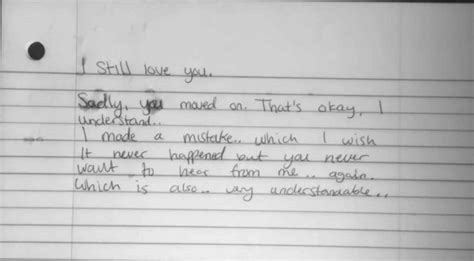 I still love you.
Sadly, you moved on. That's okay, I
understand..
I made a mistake.. which I wish
It never happened but you never
want to hear from me.. again.
Which is also.. very understandable..